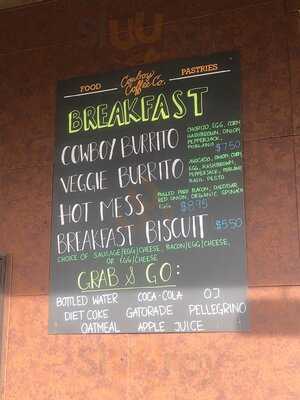 FOOD
Cowboy Coffee Co.
PASTRIES
BREAKFAST
COWBOY BURRITO
CHORIZO, EGG, CORN
HASHBROWN, ONION,
PEPPERJACK,
POBLANO $7.50
VEGGIE BURRITO
AVOCADO, ONION, CORN,
EGG, HASHBROWN,
PEPPERJACK, POBLANO
BASIL PESTO
HOT MESS
PULLED PORK, BACON, CHEDDAR,
RED ONION, ORGANIC SPINACH
EGG $8.95
BREAKFAST BISCUIT $5.50
CHOICE OF SAUSAGE/EGG/CHEESE, BACON/EGG/CHEESE,
OR EGG/CHEESE
GRAB & GO:
BOTTLED WATER COCA-COLA OJ
DIET COKE GATORADE PELLEGRINO
OATMEAL APPLE JUICE